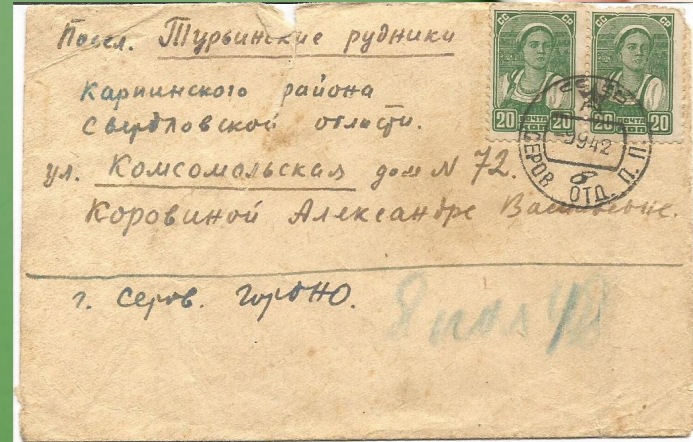 Посел. Турьинские рудники
Карпинского района
Свердловской области.
ул. Комсомольская дом N 72.
Коровиной Александре Васильевне.
г. Серов. ГорОНО.
СС СР
СС СР
20 ПОЧТА 20
20 ПОЧТА 20
9942
СЕРОВ ОТД. П. П.